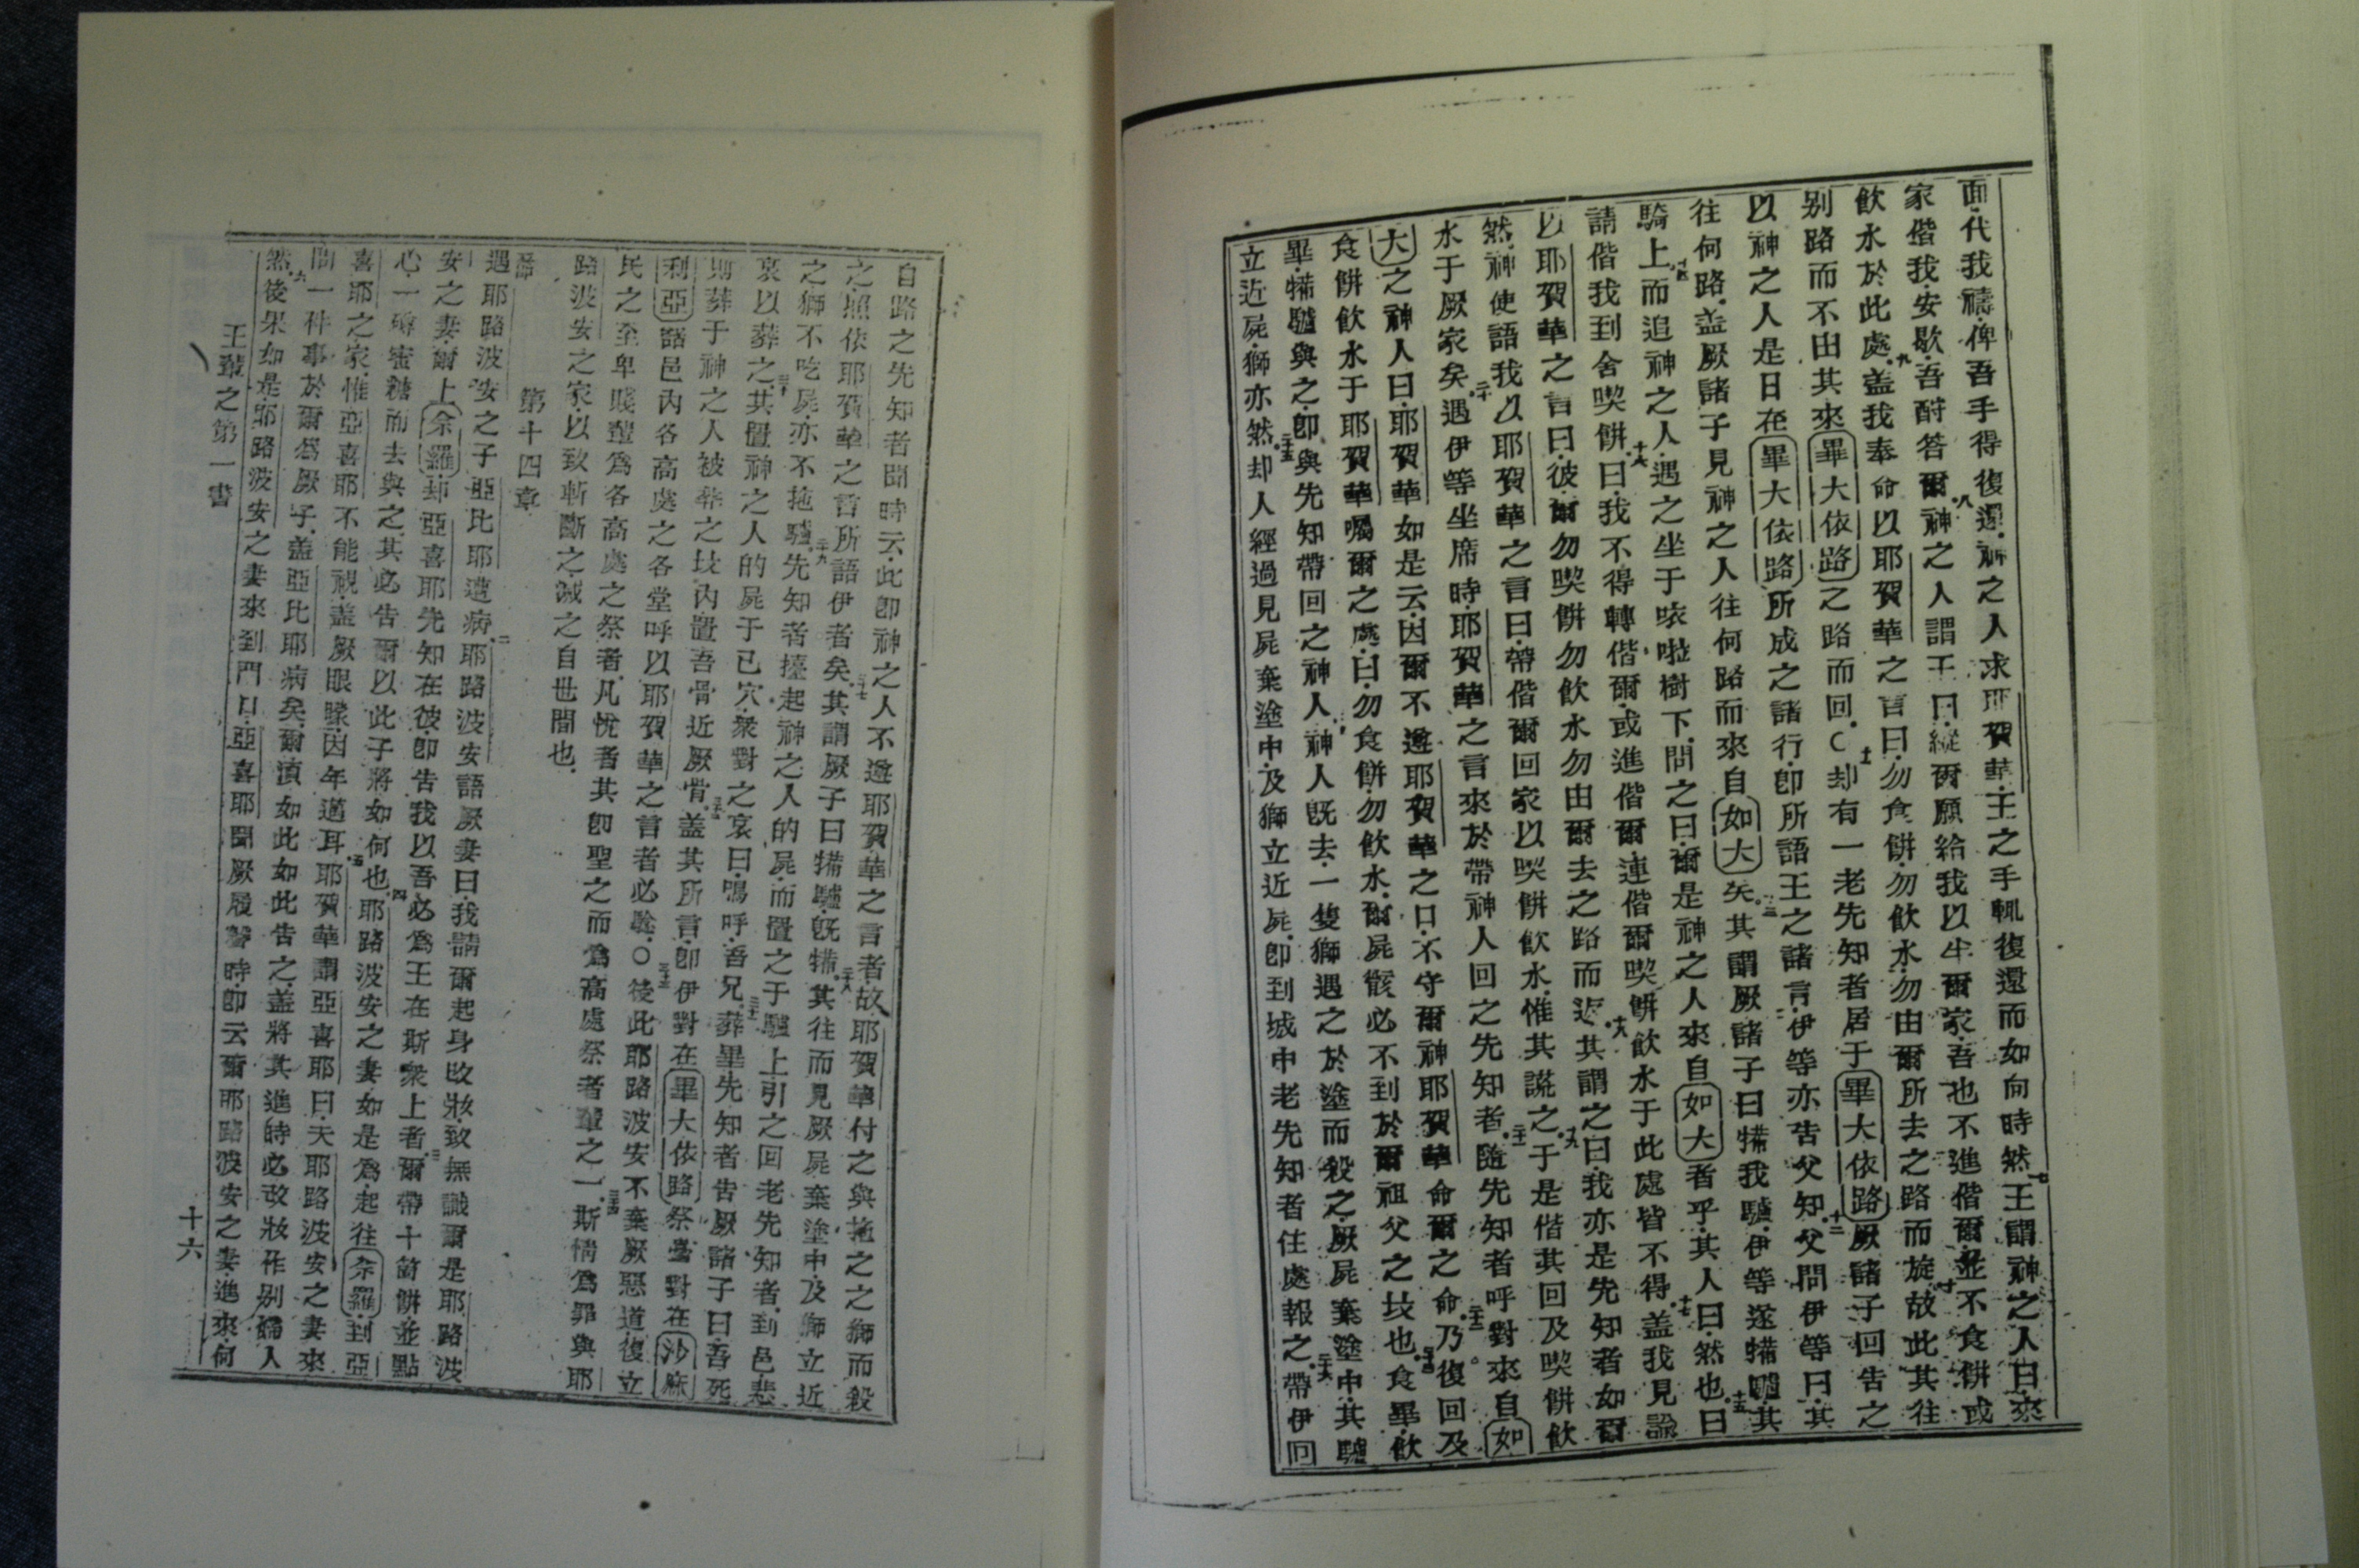 面代我禱俾吾手得復還神之人求耶賀華王之手輒復還而如向時然王謂神之人曰來
家偕我安歇吾酧答爾八神之人謂王曰縱爾願給我以半爾家吾也不進偕爾並不食餅或
飲水於此處九盖我奉命以耶賀華之言曰勿食餅勿飲水勿由爾所去之路而旋十故此其往
别路而不由其來畢大依路之路而回〇十一却有一老先知者居于畢大依路厥諸子回告之
以神之人是日在畢大依路所成之諸行即所語王之諸言伊等亦告父知十二父問伊等曰其
往何路盖厥諸子見神之人往何路而來自如大矣十三其謂厥諸子曰犕我驢伊等遂犕驢其
騎上十四而追神之人遇之坐于㖡啦樹下問之曰爾是神之人來自如大者乎其人曰然也十五曰
請偕我到舍喫餅十六曰我不得轉偕爾或進偕爾連偕爾喫餅飲水于此處皆不得十七盖我見諭
以耶賀華之言曰彼爾勿喫餅勿飲水勿由爾去之路而返十八其謂之曰我亦是先知者如爾
然神使語我以耶賀華之言曰帶偕爾回家以喫餅飲水惟其謊之十九于是偕其回及喫餅飲
水于厥家矣二十遇伊等坐席時耶賀華之言來於帶神人回之先知者二十一隨先知者呼對來自如
大之神人曰耶賀華如是云因爾不遵耶賀華之口不守爾神耶賀華命爾之命二十二乃復回及
食餅飲水于耶賀華囑爾之處曰勿食餅勿飲水爾屍骸必不到於爾祖父之坟也二十三食畢飲
畢犕驢與之即與先知帶回之神人二十四神人既去一隻獅遇之於塗而殺之厥屍棄塗中其驢
立近屍獅亦然二十五却人經過見屍棄塗中及獅立近屍即到城中老先知者住處報之二十六帶伊回
自路之先知者聞時云此即神之人不遵耶賀華之言者故耶賀華付之與拖之之獅而殺
之照依耶賀華之言所語伊者矣二十七其謂厥子曰犕驢既犕二十八其往而見厥屍棄塗中及獅立近
之獅不吃屍亦不拖驢二十九先知者擡起神之人的屍而置之于驢上引之回老先知者到邑悲
哀以葬之三十其置神之人的屍于已穴衆對之哀曰嗚呼吾兄三十一葬畢先知者吿厥諸子曰吾死
則葬于神之人被葬之坟內置吾骨近厥骨三十二盖其所言即伊對在畢大依路祭臺對在沙麻
利亞諸邑內各高處之各堂呼以耶賀華之言者必驗〇三十三後此耶路波安不棄厥惡道復立
民之至卑賤輩爲各高處之祭者凡悅者其即聖之而爲高處祭者輩之一三十四斯情爲罪與耶
路波安之家以致斬斷之滅之自世間也
第十四章
一節遇耶路波安之子亞比耶遭病二耶路波安語厥妻曰我請爾起身改妝致無識爾是耶路波
安之妻爾上佘羅却亞喜耶先知在彼即告我以吾必爲王在斯衆上者三爾帶十箇餅並點
心一罇蜜糖而去與之其必告爾以此子將如何也四耶路波安之妻如是爲起往佘羅到亞
喜耶之家惟亞喜耶不能視盖厥眼矇因年邁耳五耶賀華謂亞喜耶曰夭耶路波安之妻來
問一件事於爾爲厥子盖亞比耶病矣爾須如此如此告之盖將其進時必改妝作别婦人
然六後果如是耶路波安之妻來到門口亞喜耶聞厥履聲時即云爾耶路波安之妻進來何
王輩之第一書
十六